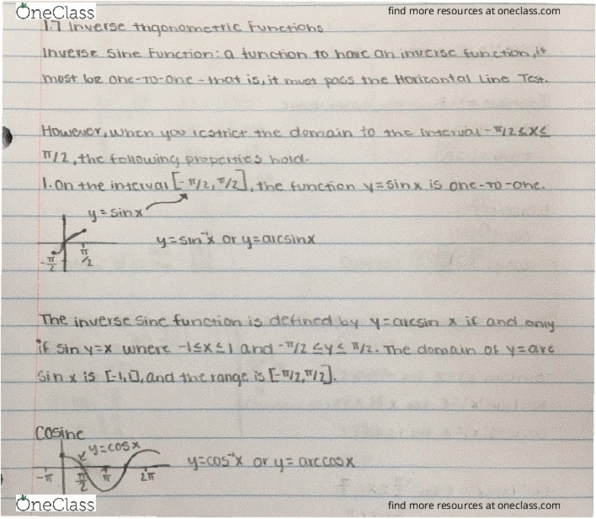 OneClass
find more resources at oneclass.com
1.7 Inverse trigonometric Functions
Inverse Sine Function: a function to have an inverse function, it
most be one-to-one - that is, it must pass the Horizontal Line Test.
However, when you restrict the domain to the interval -π/2 ≤ x ≤
π/2, the following properties hold.
1. On the interval [-π/2, π/2], the function y=sin x is one-to-one.
y=sin x
y=sin⁻¹x or y=arcsinx
-π/2 π/2
The inverse sine function is defined by y=arcsin x if and only
if sin y=x where -1≤x≤1 and -π/2 ≤y≤ π/2. The domain of y=arc
sin x is [-1,1], and the range is [-π/2, π/2].
Cosine
y=cosx
y=cos⁻¹x or y= arccosx
-π π/2 π 2π
OneClass
find more resources at oneclass.com